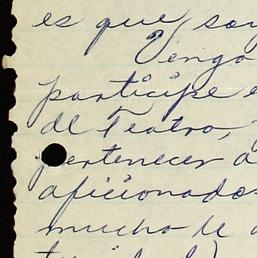 es que soy
Vengo
participe e
de Teatro,
pertenecer a
aficionados
mucho le a